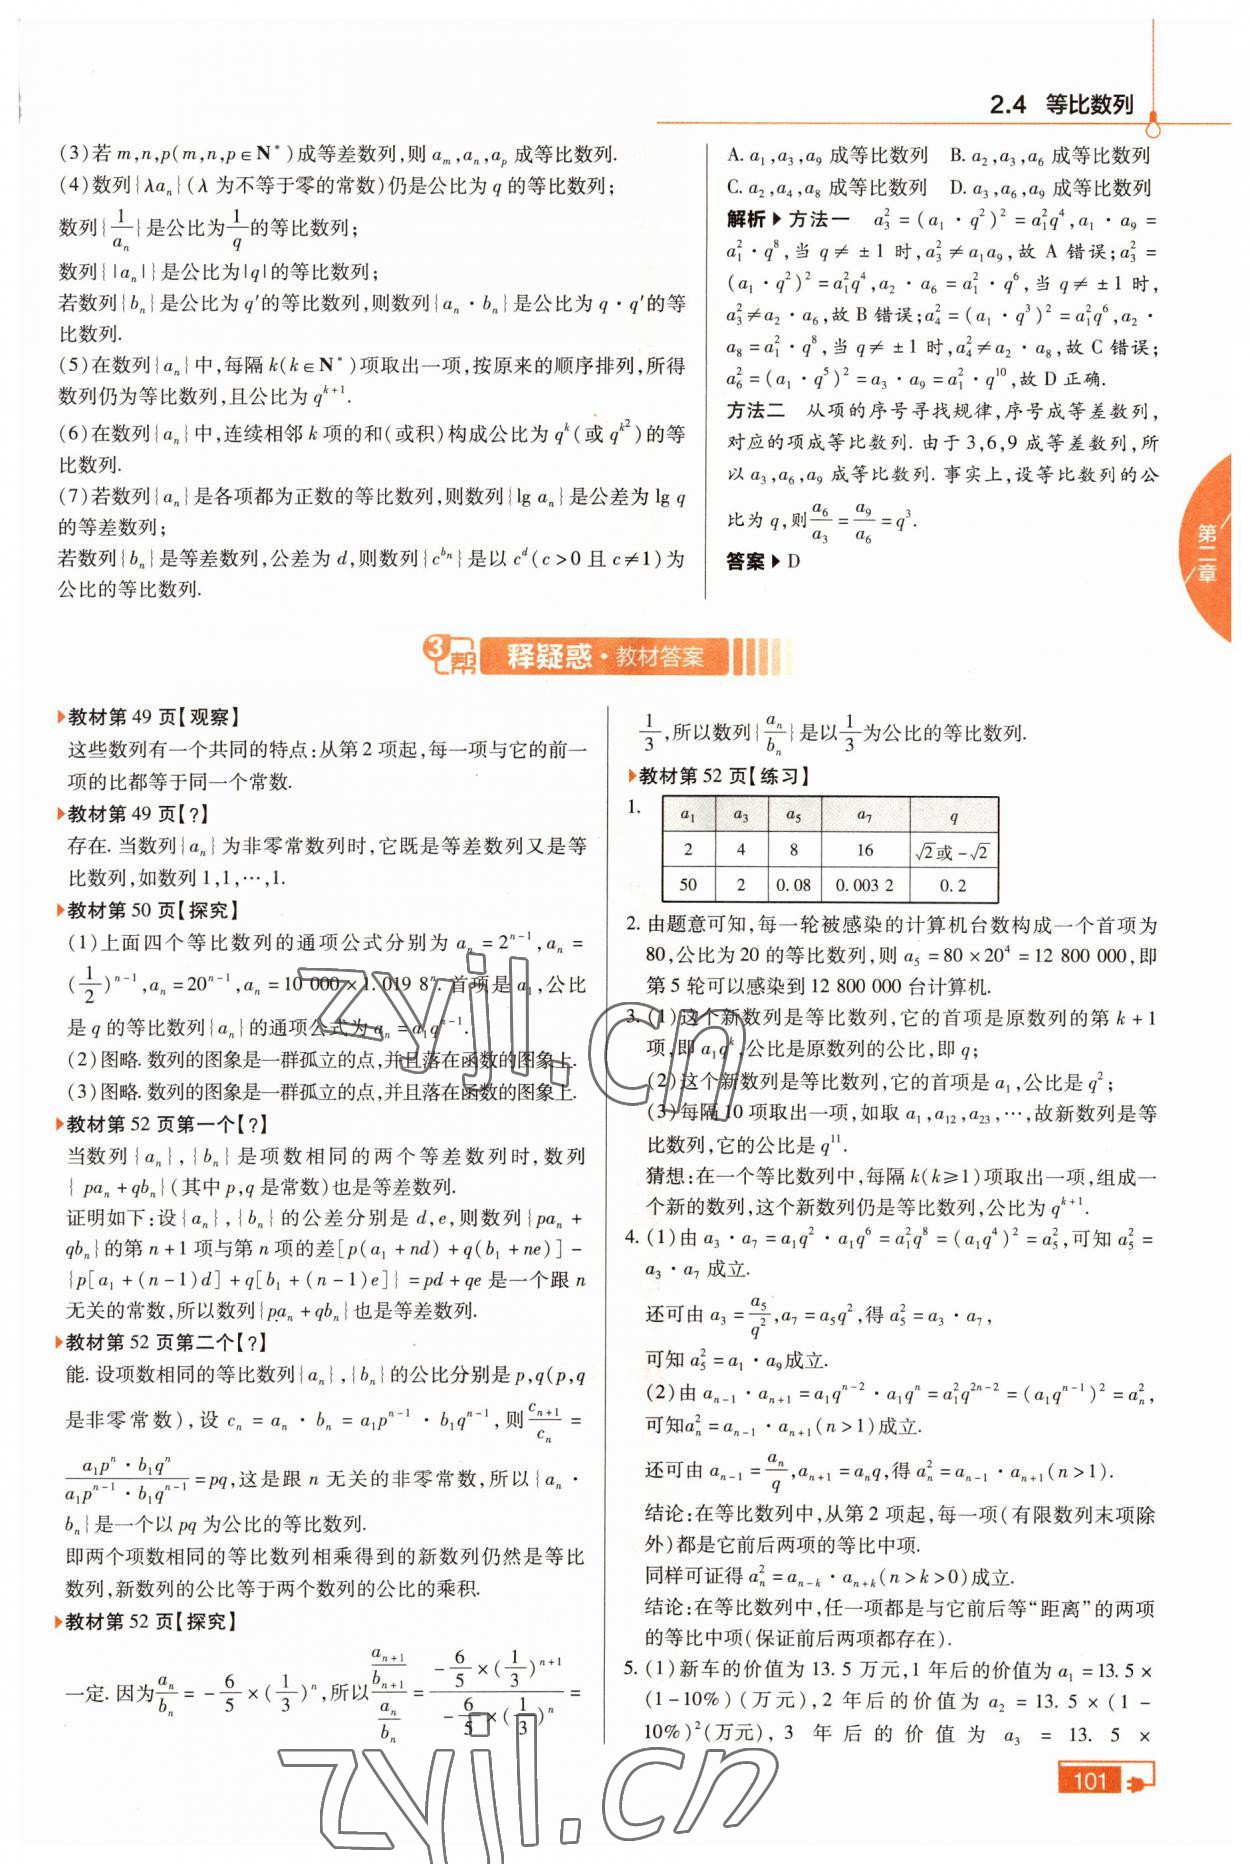 2.4 等比数列
(3)若 m,n,p(m,n,p∈N*)成等差数列,则 aₘ,aₙ,aₚ 成等比数列.
(4)数列{λaₙ}(λ 为不等于零的常数)仍是公比为 q 的等比数列;
数列{1/aₙ}是公比为1/q的等比数列;
数列{|aₙ|}是公比为|q|的等比数列;
若数列{bₙ}是公比为 q′的等比数列,则数列{aₙ·bₙ}是公比为 q·q′的等
比数列.
(5)在数列{aₙ}中,每隔 k(k∈N*)项取出一项,按原来的顺序排列,所得
数列仍为等比数列,且公比为 q^(k+1).
(6)在数列{aₙ}中,连续相邻 k 项的和(或积)构成公比为 q^k(或 q^(k²))的等
比数列.
(7)若数列{aₙ}是各项都为正数的等比数列,则数列{lg aₙ}是公差为 lg q
的等差数列;
若数列{bₙ}是等差数列,公差为 d,则数列{c^(bₙ)}是以 c^d(c>0 且 c≠1)为
公比的等比数列.
A. a₁,a₃,a₉ 成等比数列 B. a₂,a₃,a₆ 成等比数列
C. a₂,a₄,a₈ 成等比数列 D. a₃,a₆,a₉ 成等比数列
解析▶方法一 a₃²=(a₁·q²)²=a₁²q⁴,a₁·a₉=
a₁²·q⁸,当 q≠±1 时,a₃²≠a₁a₉,故 A 错误;a₃²=
(a₁·q²)²=a₁²q⁴,a₂·a₆=a₁²·q⁶,当 q≠±1 时,
a₃²≠a₂·a₆,故 B 错误;a₄²=(a₁·q³)²=a₁²q⁶,a₂·
a₈=a₁²·q⁸,当 q≠±1 时,a₄²≠a₂·a₈,故 C 错误;
a₆²=(a₁·q⁵)²=a₃·a₉=a₁²·q¹⁰,故 D 正确.
方法二 从项的序号寻找规律,序号成等差数列,
对应的项成等比数列.由于 3,6,9 成等差数列,所
以 a₃,a₆,a₉ 成等比数列.事实上,设等比数列的公
比为 q,则a₆/a₃=a₉/a₆=q³.
答案▶D
第二章
3帮 释疑惑·教材答案
教材第 49 页【观察】
这些数列有一个共同的特点:从第 2 项起,每一项与它的前一
项的比都等于同一个常数.
教材第 49 页【?】
存在.当数列{aₙ}为非零常数列时,它既是等差数列又是等
比数列,如数列 1,1,…,1.
教材第 50 页【探究】
(1)上面四个等比数列的通项公式分别为 aₙ=2^(n-1),aₙ=
(1/2)^(n-1),aₙ=20^(n-1),aₙ=10 000×1.019 8ⁿ.首项是 a₁,公比
是 q 的等比数列{aₙ}的通项公式为 aₙ=a₁q^(n-1).
(2)图略.数列的图象是一群孤立的点,并且落在函数的图象上.
(3)图略.数列的图象是一群孤立的点,并且落在函数的图象上.
教材第 52 页第一个【?】
当数列{aₙ},{bₙ}是项数相同的两个等差数列时,数列
{paₙ+qbₙ}(其中 p,q 是常数)也是等差数列.
证明如下:设{aₙ},{bₙ}的公差分别是 d,e,则数列{paₙ+
qbₙ}的第 n+1 项与第 n 项的差[p(a₁+nd)+q(b₁+ne)]-
{p[a₁+(n-1)d]+q[b₁+(n-1)e]}=pd+qe 是一个跟 n
无关的常数,所以数列{paₙ+qbₙ}也是等差数列.
教材第 52 页第二个【?】
能.设项数相同的等比数列{aₙ},{bₙ}的公比分别是 p,q(p,q
是非零常数),设 cₙ=aₙ·bₙ=a₁p^(n-1)·b₁q^(n-1),则cₙ₊₁/cₙ=
(a₁pⁿ·b₁qⁿ)/(a₁p^(n-1)·b₁q^(n-1))=pq,这是跟 n 无关的非零常数,所以{aₙ·
bₙ}是一个以 pq 为公比的等比数列.
即两个项数相同的等比数列相乘得到的新数列仍然是等比
数列,新数列的公比等于两个数列的公比的乘积.
教材第 52 页【探究】
一定.因为aₙ/bₙ=-6/5×(1/3)ⁿ,所以(aₙ₊₁/bₙ₊₁)/(aₙ/bₙ)=(-6/5×(1/3)^(n+1))/(-6/5×(1/3)ⁿ)=
1/3,所以数列{aₙ/bₙ}是以1/3为公比的等比数列.
教材第 52 页【练习】
1.
a₁ a₃ a₅ a₇ q
2 4 8 16 √2或-√2
50 2 0.08 0.003 2 0.2
2. 由题意可知,每一轮被感染的计算机台数构成一个首项为
80,公比为 20 的等比数列,则 a₅=80×20⁴=12 800 000,即
第 5 轮可以感染到 12 800 000 台计算机.
3. (1)这个新数列是等比数列,它的首项是原数列的第 k+1
项,即 a₁q^k,公比是原数列的公比,即 q;
(2)这个新数列是等比数列,它的首项是 a₁,公比是 q²;
(3)每隔 10 项取出一项,如取 a₁,a₁₂,a₂₃,…,故新数列是等
比数列,它的公比是 q¹¹.
猜想:在一个等比数列中,每隔 k(k≥1)项取出一项,组成一
个新的数列,这个新数列仍是等比数列,公比为 q^(k+1).
4. (1)由 a₃·a₇=a₁q²·a₁q⁶=a₁²q⁸=(a₁q⁴)²=a₅²,可知 a₅²=
a₃·a₇ 成立.
还可由 a₃=a₅/q²,a₇=a₅q²,得 a₅²=a₃·a₇,
可知 a₅²=a₁·a₉成立.
(2)由 aₙ₋₁·aₙ₊₁=a₁q^(n-2)·a₁qⁿ=a₁²q^(2n-2)=(a₁q^(n-1))²=aₙ²,
可知aₙ²=aₙ₋₁·aₙ₊₁(n>1)成立.
还可由 aₙ₋₁=aₙ/q,aₙ₊₁=aₙq,得 aₙ²=aₙ₋₁·aₙ₊₁(n>1).
结论:在等比数列中,从第 2 项起,每一项(有限数列末项除
外)都是它前后两项的等比中项.
同样可证得 aₙ²=aₙ₋ₖ·aₙ₊ₖ(n>k>0)成立.
结论:在等比数列中,任一项都是与它前后等“距离”的两项
的等比中项(保证前后两项都存在).
5. (1)新车的价值为 13.5 万元,1 年后的价值为 a₁=13.5×
(1-10%)(万元),2 年后的价值为 a₂=13.5×(1-
10%)²(万元),3 年后的价值为 a₃=13.5×
zyjl.cn
zyjl.cn
101